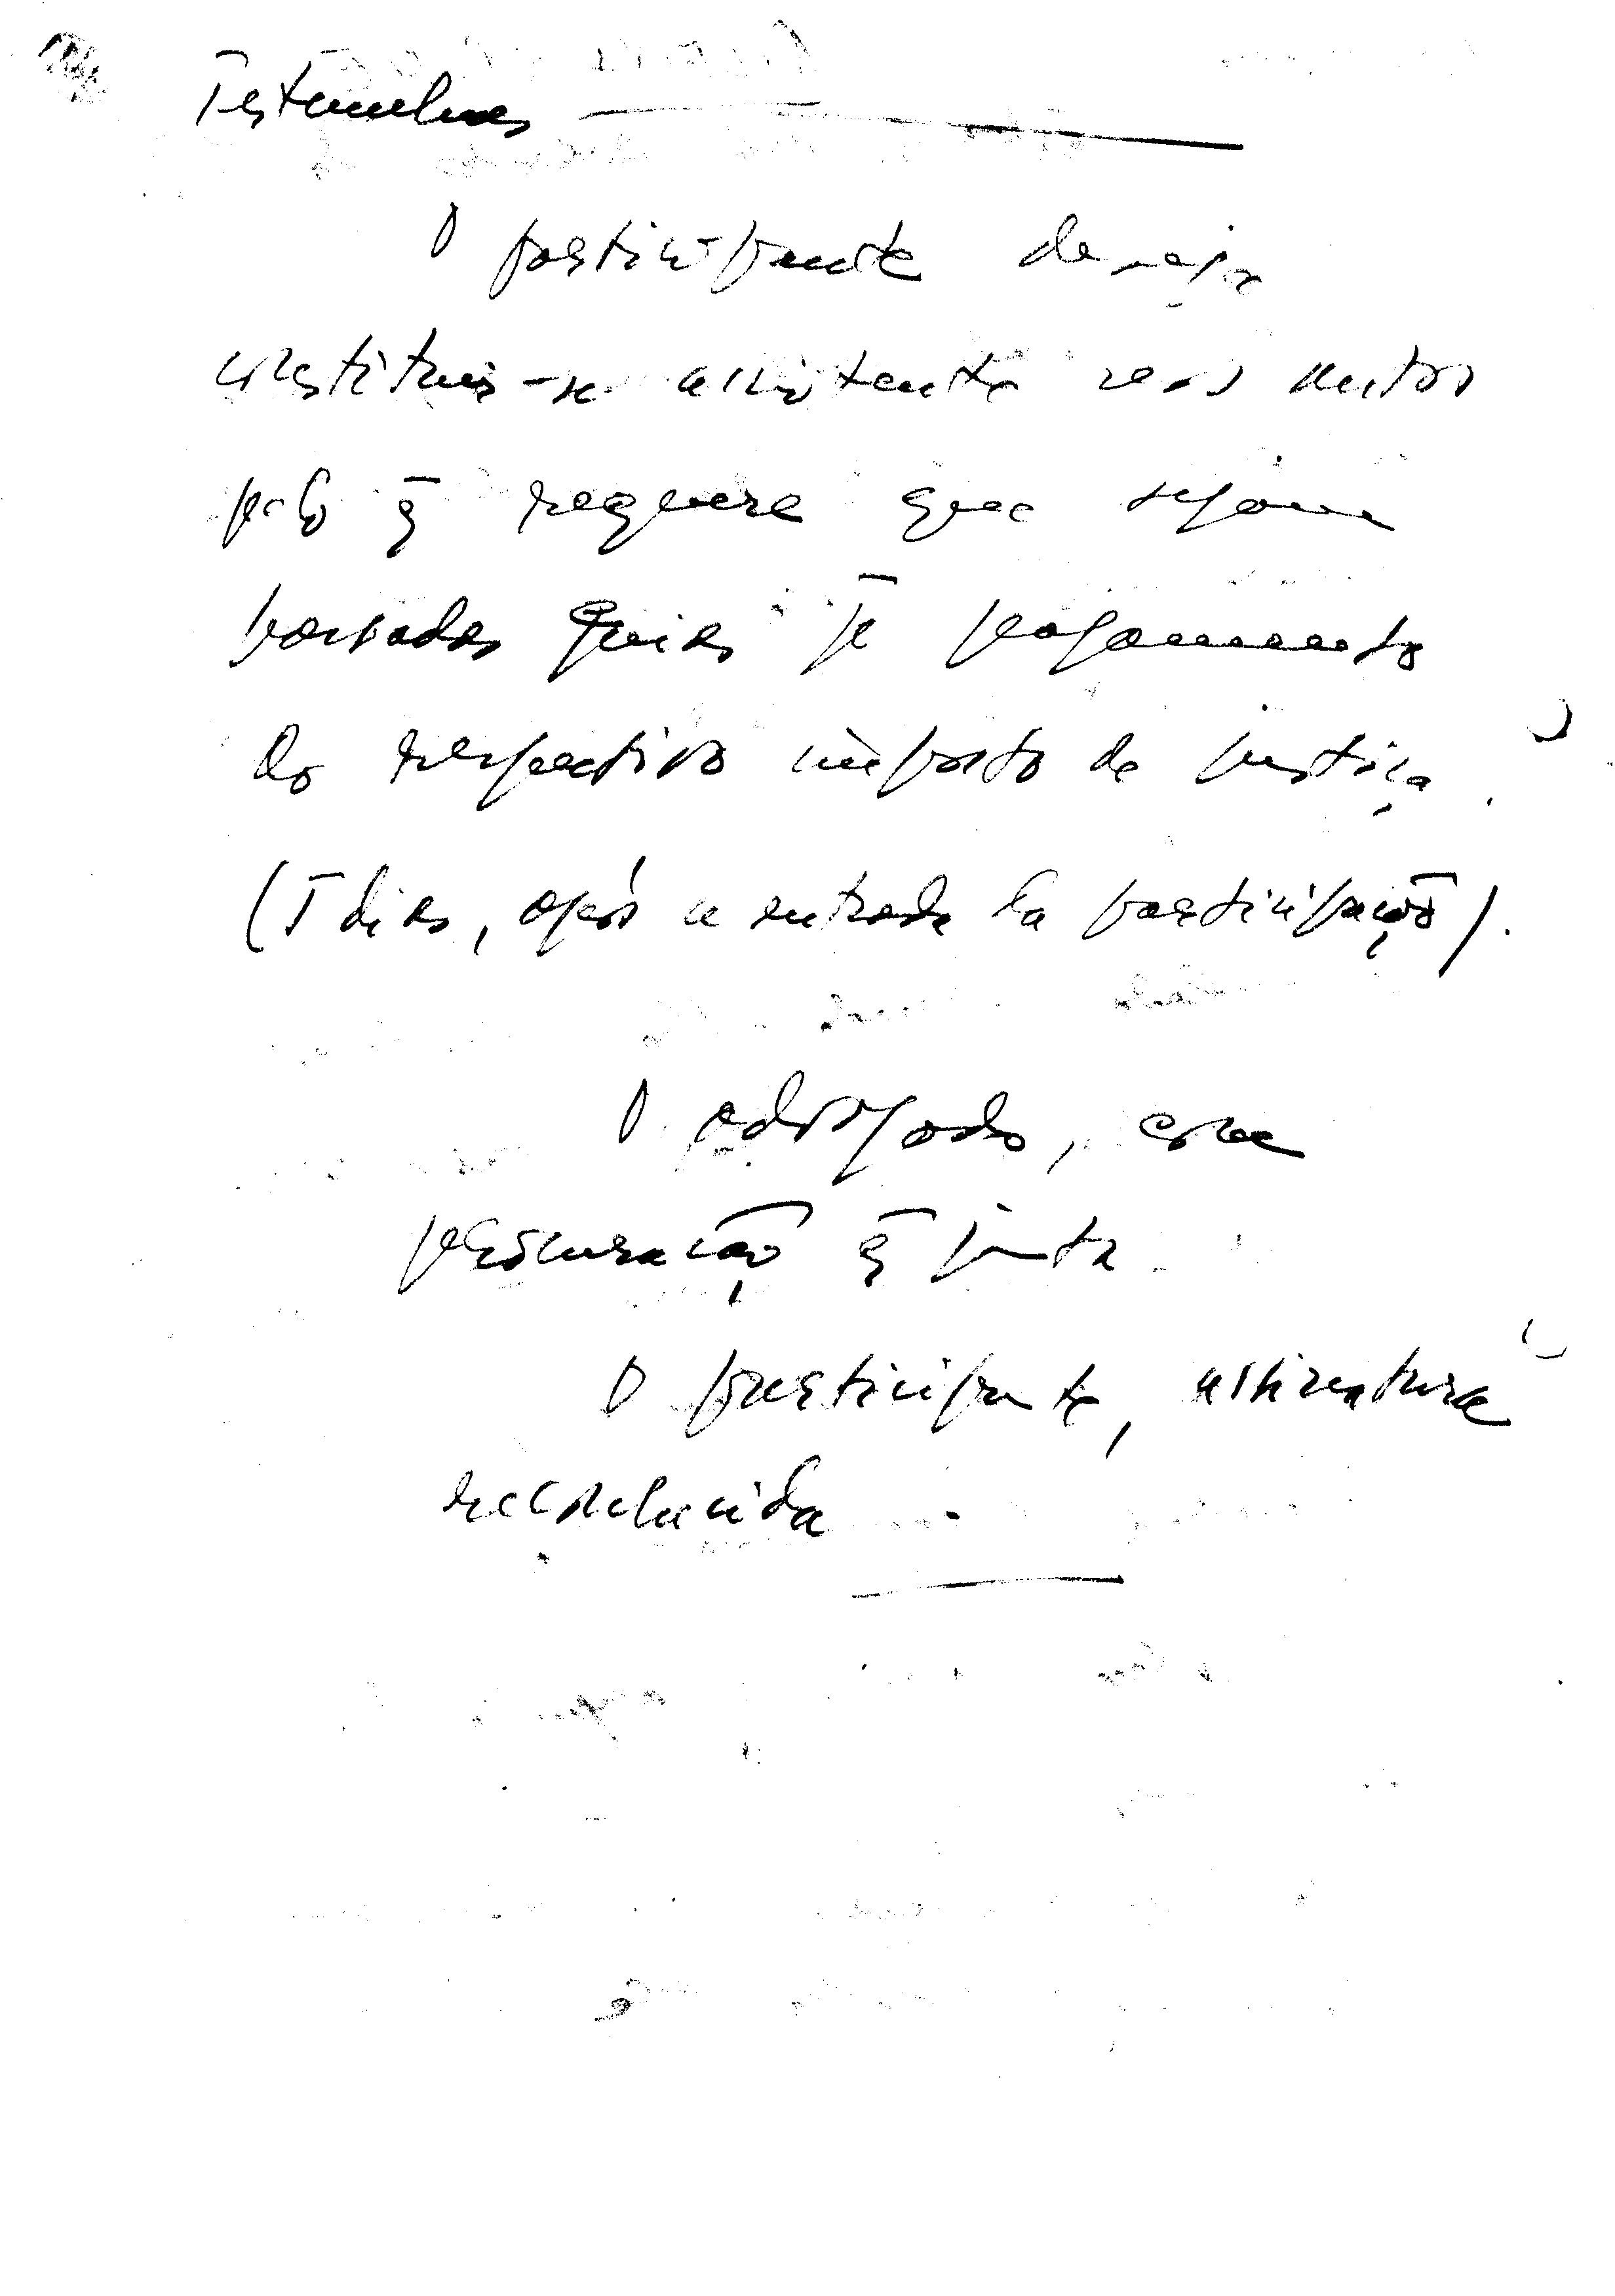 Testemunhas
O participante deseja
constituir-se assistente nos autos
pelo q̄ requere que sejam
passadas guias p̄ pagamento
do respectivo imposto de justiça
(5 dias, após a entrada da participação).
O advogado, com
procuração q̄ junta.
O participante, assinatura
reconhecida.